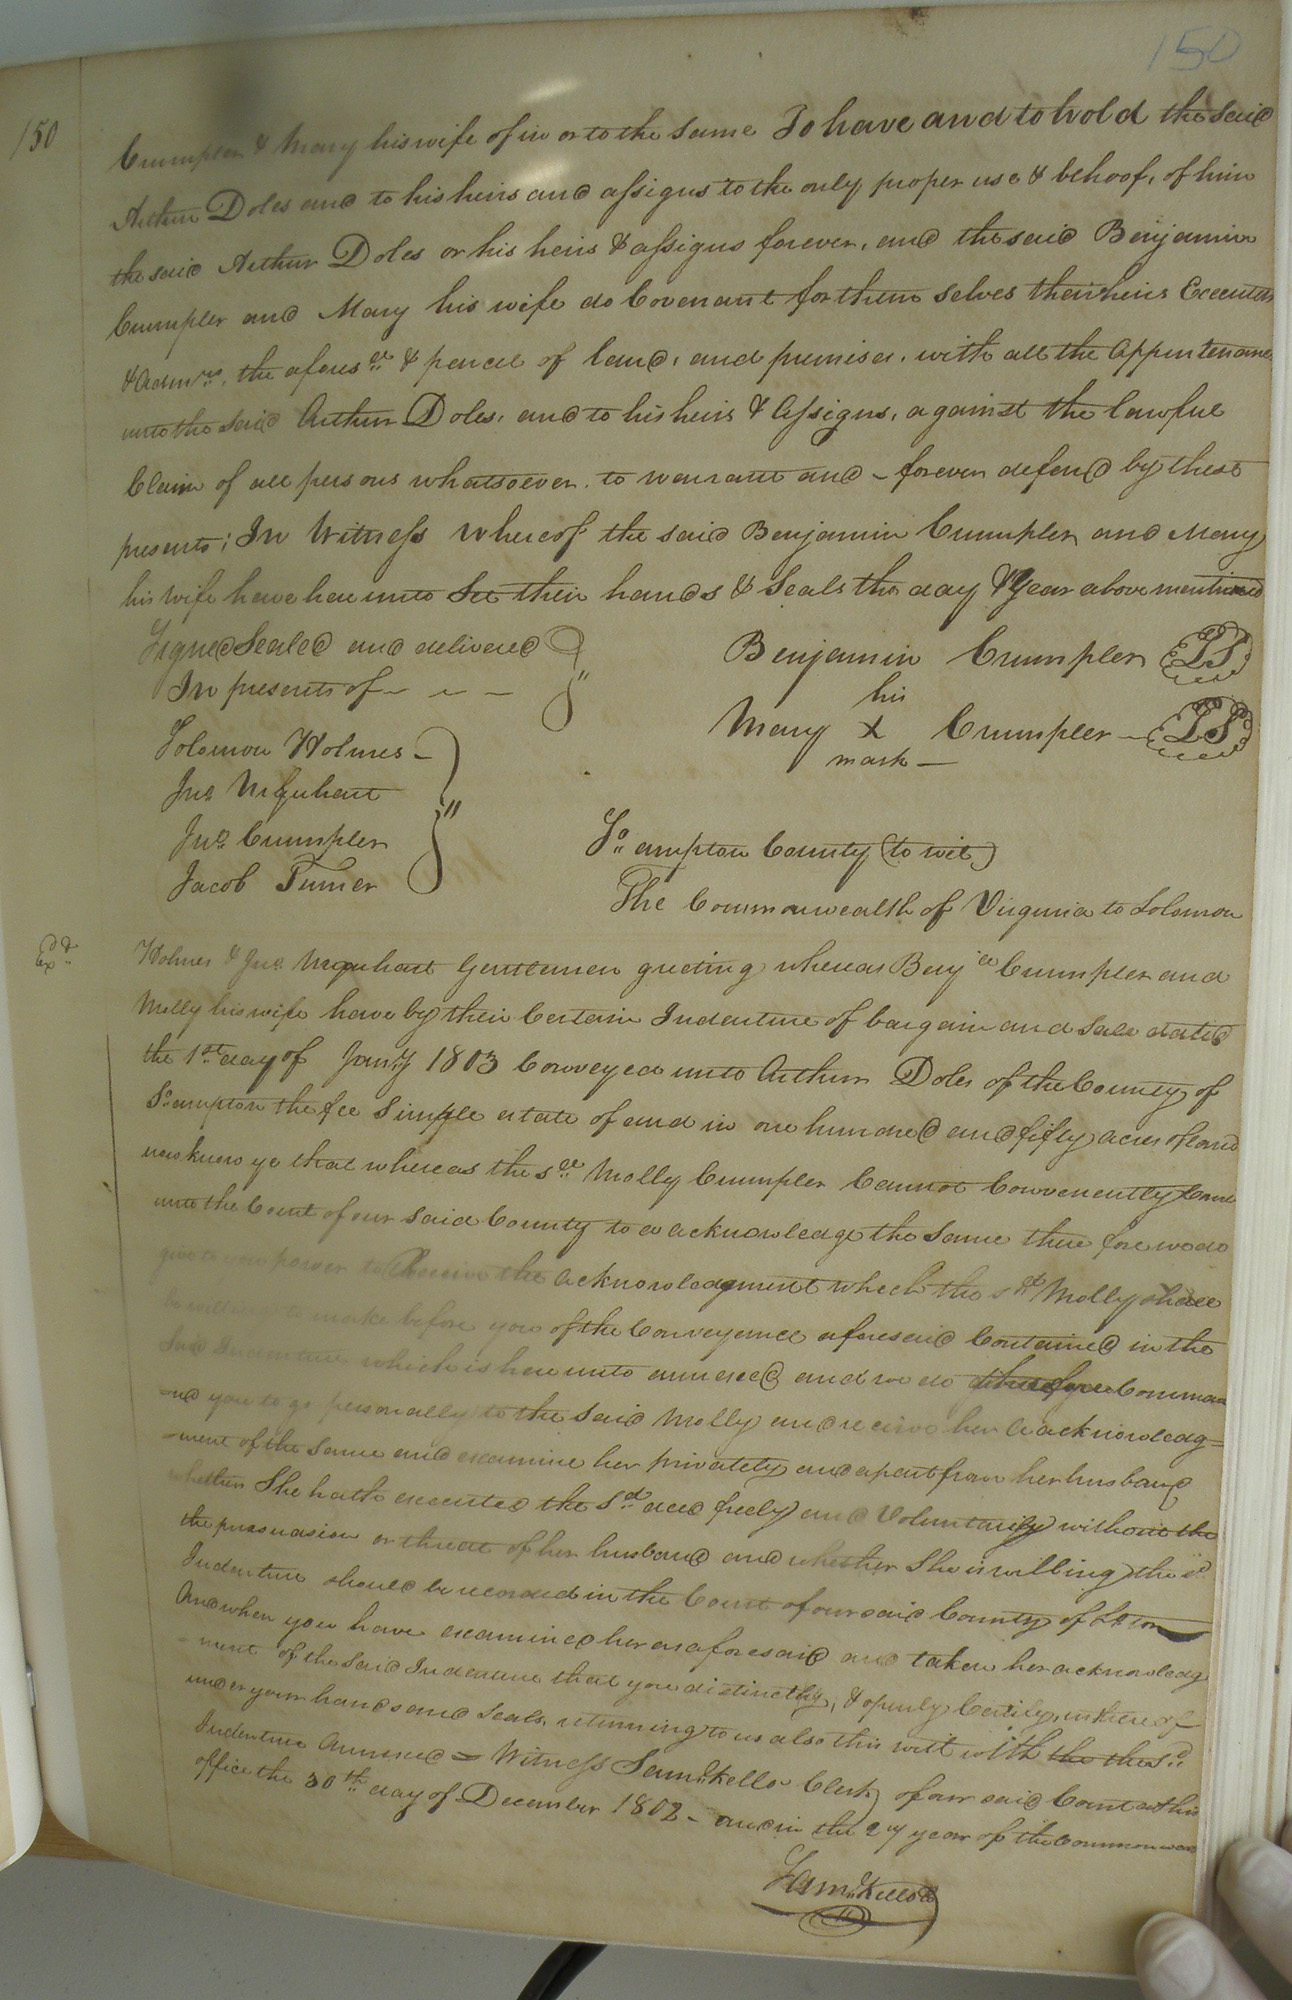 150
150
Crumpler & Mary his wife of in or to the same To have and to hold the said
Arthur Doles and to his heirs and assigns to the only proper use & behoof, of him
the said Arthur Doles or his heirs & assigns forever, and the said Benjamin
Crumpler and Mary his wife do Covenant for them selves their heirs Executors
& Admrs. the afores.d & parcel of land, and premises, with all the Appurtenances
unto the said Arthur Doles, and to his heirs & Assigns, against the lawful
Claim of all persons whatsoever. to warrant and - forever defend by these
presents; In Witness whereof the said Benjamin Crumpler and Mary
his wife have here unto Set their hands & Seals the day & Year above mentioned
Signed Sealed and delivered
In presents of - - -
Benjamin Crumpler LS
his
Mary X Crumpler - LS
mark -
Solomon Holmes -
Jno. Urquhart
Jno. Crumpler
Jacob Turner
So. ampton County (to wit)
The Commonwealth of Virginia to Solomon
Exd.
Holmes & Jno. Urquhart Gentlemen greeting whereas Benj.a Crumpler and
Molly his wife have by their Certain Indenture of bargain and Sale dated
the 1st day of Jany 1803 Conveyed unto Arthur Doles of the County of
So.ampton the fee Simple estate of and in one hundred and fifty acres of land
now know ye that whereas the sd. Molly Crumpler Cannot Conveniently Come
unto the Court of our said County to acknowledge the Same there fore we do
give to you power to Receive the acknowledgment which the sd. Molly shall
be willing to make before you of the Conveyance aforesaid Contained in the
Said Indenture which is here unto annexed and we do therefore Comman
-nd you to go personally to the said Molly and receive her acknowledg=
-ment of the Same and examine her privately and apart from her husband
whether She hath executed the sd. deed freely and Voluntarily without the
the persuasion or threat of her husband and whether She is willing the sd.
Indenture should be recorded in the Court of our said County of
And when you have examined her as aforesaid and taken her acknowledg
-ment of the Said Indenture that you distinctly, & openly Certify, us there of
under your hands and Seals, returning to us also this writ with the the sd.
Indenture Annexed = Witness Saml. Kello Clerk of our said Court at his
office the 30th. day of December 1802 - and in the 27 year of the Commonwea
Saml. Kello